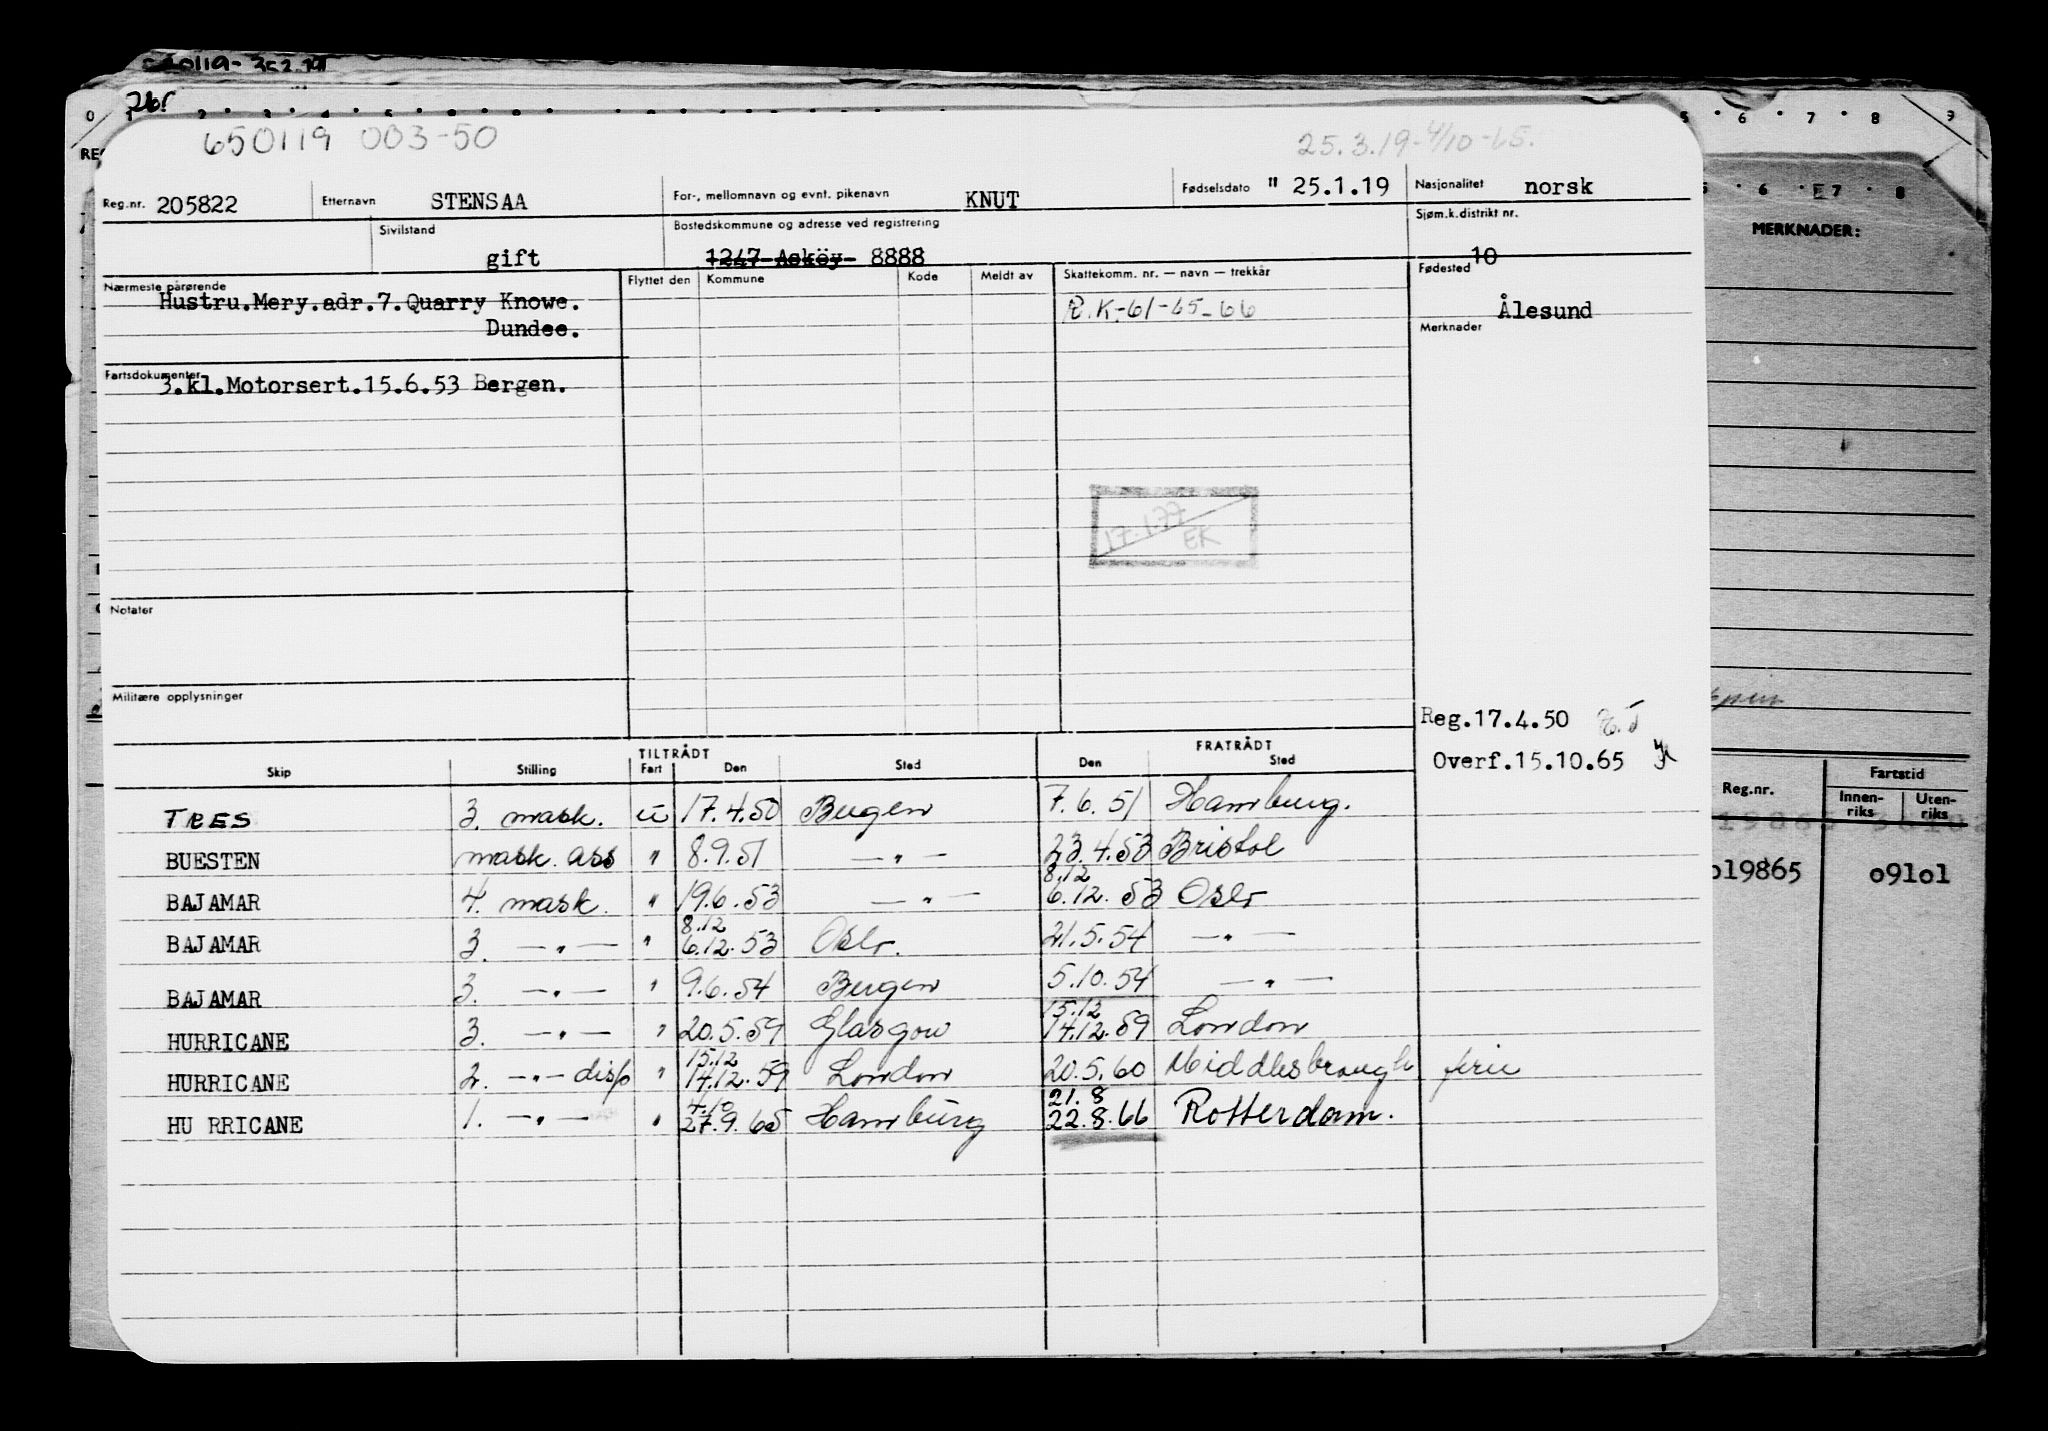 26!
0 1 2 3 4 5 6 7 8 9
650119 003-50
25.3.19-4/10-65.
Reg.nr. 205822 Etternavn STENSAA For-, mellomnavn og evnt. pikenavn KNUT Fødselsdato " 25.1.19 Nasjonalitet norsk
Sivilstand gift Bostedskommune og adresse ved registrering 1247 Asköy 8888 Sjøm.k.distrikt nr. 10
Nærmeste pårørende Flyttet den Kommune Kode Meldt av Skattekomm. nr. — navn — trekkår Fødested
Hustru.Mery.adr.7.Quarry Knowe. R.K-61-65-66 Ålesund
Dundee. Merknader
Fartsdokumenter
3.kl.Motorsert.15.6.53 Bergen.
17.1.77
EK
Notater
Militære opplysninger
Reg.17.4.50
Overf.15.10.65
TILTRÅDT FRATRÅDT
Skip Stilling Fart Den Sted Den Sted
TRES 3. mask. u 17.4.50 Bergen 7.6.51 Hamburg.
BUESTEN mask. ass " 8.9.51 — " — 23.4.53 Bristol
8.12
BAJAMAR 4. mask. " 19.6.53 — " — 6.12.53 Oslo
8.12
BAJAMAR 3. — " — " 6.12.53 Oslo. 21.5.54 — " —
BAJAMAR 3. — " — " 9.6.54 Bergen 5.10.54 — " —
15.12
HURRICANE 3. — " — " 20.5.59 Glasgow 14.12.59 London
15.12
HURRICANE 2. — " — disp " 14.12.59 London 20.5.60 Middlesbrough frii
4.10 21.8
HU RRICANE 1. — " — " 27.9.65 Hamburg 22.8.66 Rotterdam.
5 6 7 8 9
6 7 8
MERKNADER:
Reg.nr. Fartstid
Innen-riks Uten-riks
o19865 o91o1